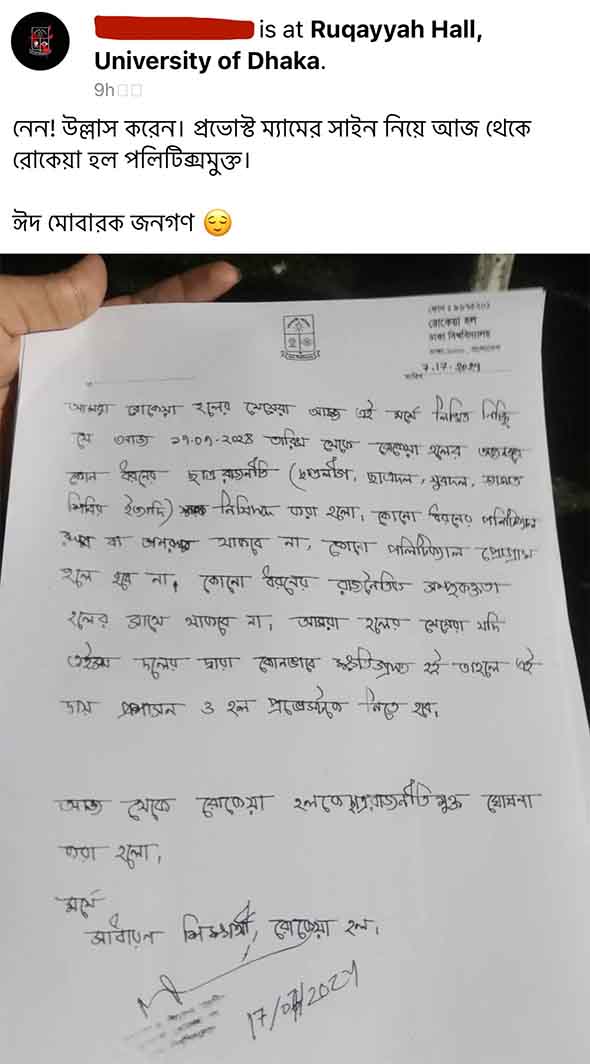 is at Ruqayyah Hall,
University of Dhaka.
9h
নেন! উল্লাস করেন। প্রভোস্ট ম্যামের সাইন নিয়ে আজ থেকে
রোকেয়া হল পলিটিক্সমুক্ত।
ঈদ মোবারক জনগণ 😌
রোকেয়া হল
ঢাকা বিশ্ববিদ্যালয়
আমরা রোকেয়া হলের মেয়েরা আজ এই মর্মে লিখিত নিচ্ছি
যে আজ ১৭-০৭-২০২৪ তারিখ থেকে রোকেয়া হলের অভ্যন্তরে
কোন ধরনের ছাত্র রাজনীতি (ছাত্রলীগ, ছাত্রদল, যুবদল, জামাত
শিবির ইত্যাদি) নিষিদ্ধ করা হলো, কোনো ধরনের পলিটিক্যাল
রুম বা গণরুম থাকবে না, কোনো পলিটিক্যাল প্রোগ্রাম
হলে হবে না, কোনো ধরনের রাজনৈতিক সম্পৃক্ততা
হলের সাথে থাকবে না, আমরা হলের মেয়েরা যদি
এইসব দলের দ্বারা কোনভাবে ক্ষতিগ্রস্ত হই তাহলে এই
দায় প্রশাসন ও হল প্রভোস্টকে নিতে হবে,
আজ থেকে রোকেয়া হলকে ছাত্ররাজনীতি মুক্ত ঘোষনা
করা হলো,
মর্মে
সাধারণ শিক্ষার্থী, রোকেয়া হল,
17/07/2024